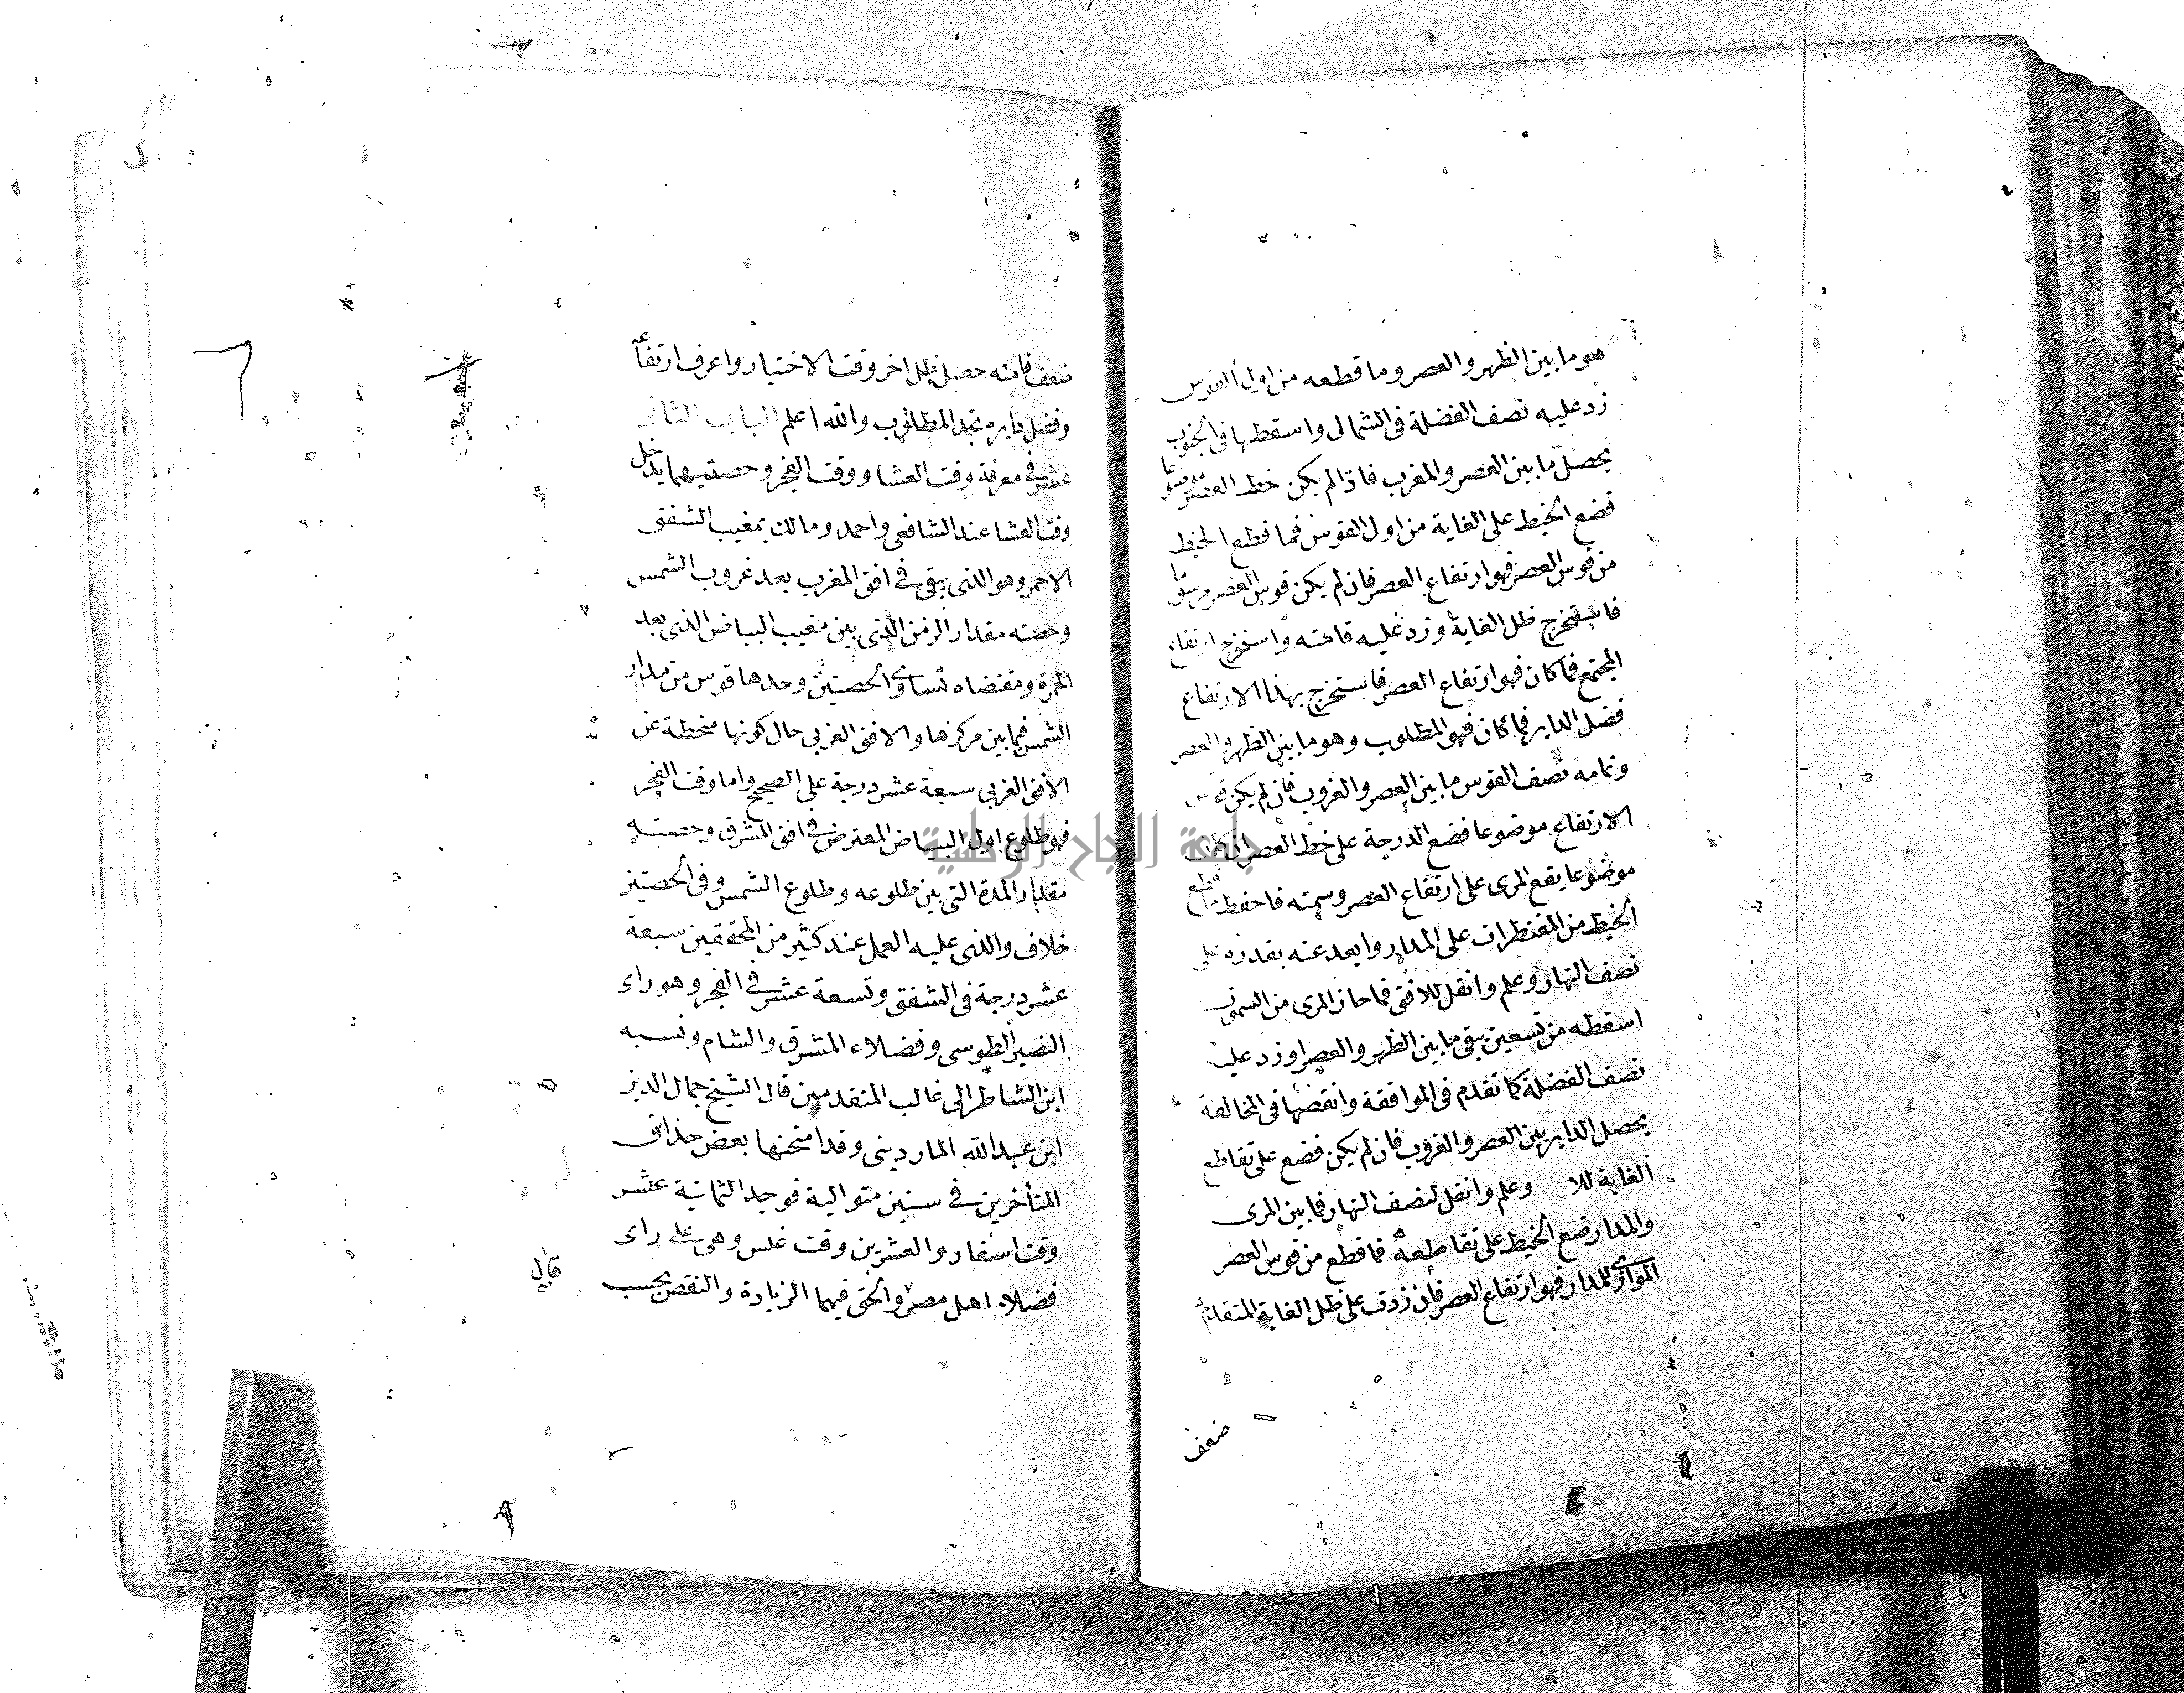 هو ما بين الظهر والعصر وما قطعه من اول القوس
زد عليه نصف الفضلة في الشمالى واسقطها في الجنوب
يحصل ما بين العصر والمغرب فاذا لم يكن خط العصر موضوعا
فضع الخيط على الغاية من اول القوس فما قطع الخيط
من قوس العصر فهو ارتفاع العصر فان لم يكن قوس العصر مرسوما
فاستخرج ظل الغاية وزد عليه قامته واستخرج ارتفاع
المجتمع فما كان فهو ارتفاع العصر فاستخرج بهذا الارتفاع
فضل الداير فما كان فهو المطلوب وهو ما بين الظهر والعصر
وتمامه نصف القوس ما بين العصر والغروب فان لم يكن قوس
الارتفاع موضوعا فضع الدرجة على خط العصر ان كان
موضوعا يقع المرى على ارتفاع العصر وسمته فاحفظ ما قطع
الخيط من المقنطرات على المدار وابعد عنه بقدره على
نصف النهار وعلم وانقل للافق فما حاز المرى من السموت
اسقطه من تسعين يبقى ما بين الظهر والعصر او زد عليه
نصف الفضلة كما تقدم في الموافقة وانقصها في المخالفة
يحصل الداير بين العصر والغروب فان لم يكن فضع على تقاطع
الغاية للا وعلم وانقل لنصف النهار فما بين المرى
والمدار ضع الخيط على تقاطعه فما قطع من قوس العصر
الموازى للمدار فهو ارتفاع العصر فان زدت على ظل الغاية المتقدم
ضعف
ضعف قامته حصل ظل اخر وقت الاختيار واعرف ارتفاعه
وفضل دايره تجد المطلوب والله اعلم الباب الثانى
عشر في معرفة وقت العشا ووقت الفجر وحصتيهما يدخل
وقت العشا عند الشافعى واحمد ومالك بمغيب الشفق
الاحمر وهو الذى يبقى في افق المغرب بعد غروب الشمس
وحصته مقدار الزمن الذى بين مغيب البياض الذى بعد
الحمرة ومقتضاه تساوى الحصتين وحدها قوس من مدار
الشمس فيما بين مركزها والافق الغربى حال كونها منحطة عن
الافق الغربى سبعة عشر درجة على الصحيح واما وقت الفجر
فهو طلوع اول البياض المعترض في افق المشرق وحصته
مقدار المدة التى بين طلوعه وطلوع الشمس وفى الحصتين
خلاف والذى عليه العمل عند كثير من المحققين سبعة
عشر درجة في الشفق وتسعة عشر في الفجر وهو راى
النصير الطوسى وفضلاء المشرق والشام ونسبه
ابن الشاطر الى غالب المتقدمين قال الشيخ جمال الدين
ابن عبد الله الماردينى وقد امتحنها بعض حذاق
المتأخرين في سنين متوالية فوجد الثمانية عشر
وقت اسفار والعشرين وقت غلس وهى على راى
فضلاء اهل مصر والحق فيهما الزيادة والنقص بحسب
جامعة النجاح الوطنية